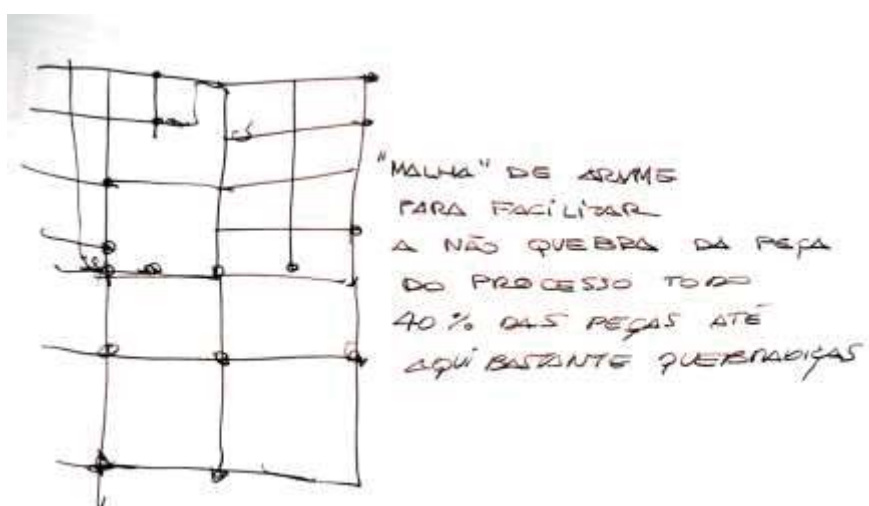 "MALHA" DE ARAME
PARA FACILITAR
A NÃO QUEBRA DA PEÇA
DO PROCESSO TODO
40% DAS PEÇAS ATÉ
AQUI BASTANTE QUEBRADIÇAS